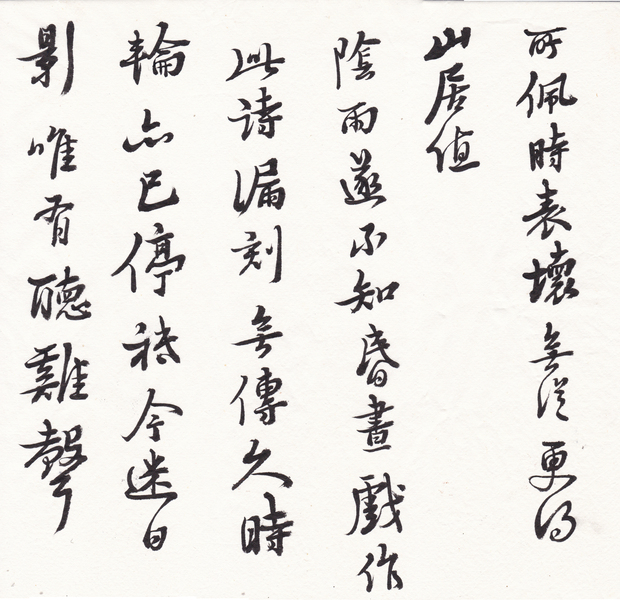 所佩時表壞無從更得
山居值
陰雨遂不知昏晝戲作
此詩漏刻無傳久時
輪亦已停祇今迷日
影唯有聽雞聲